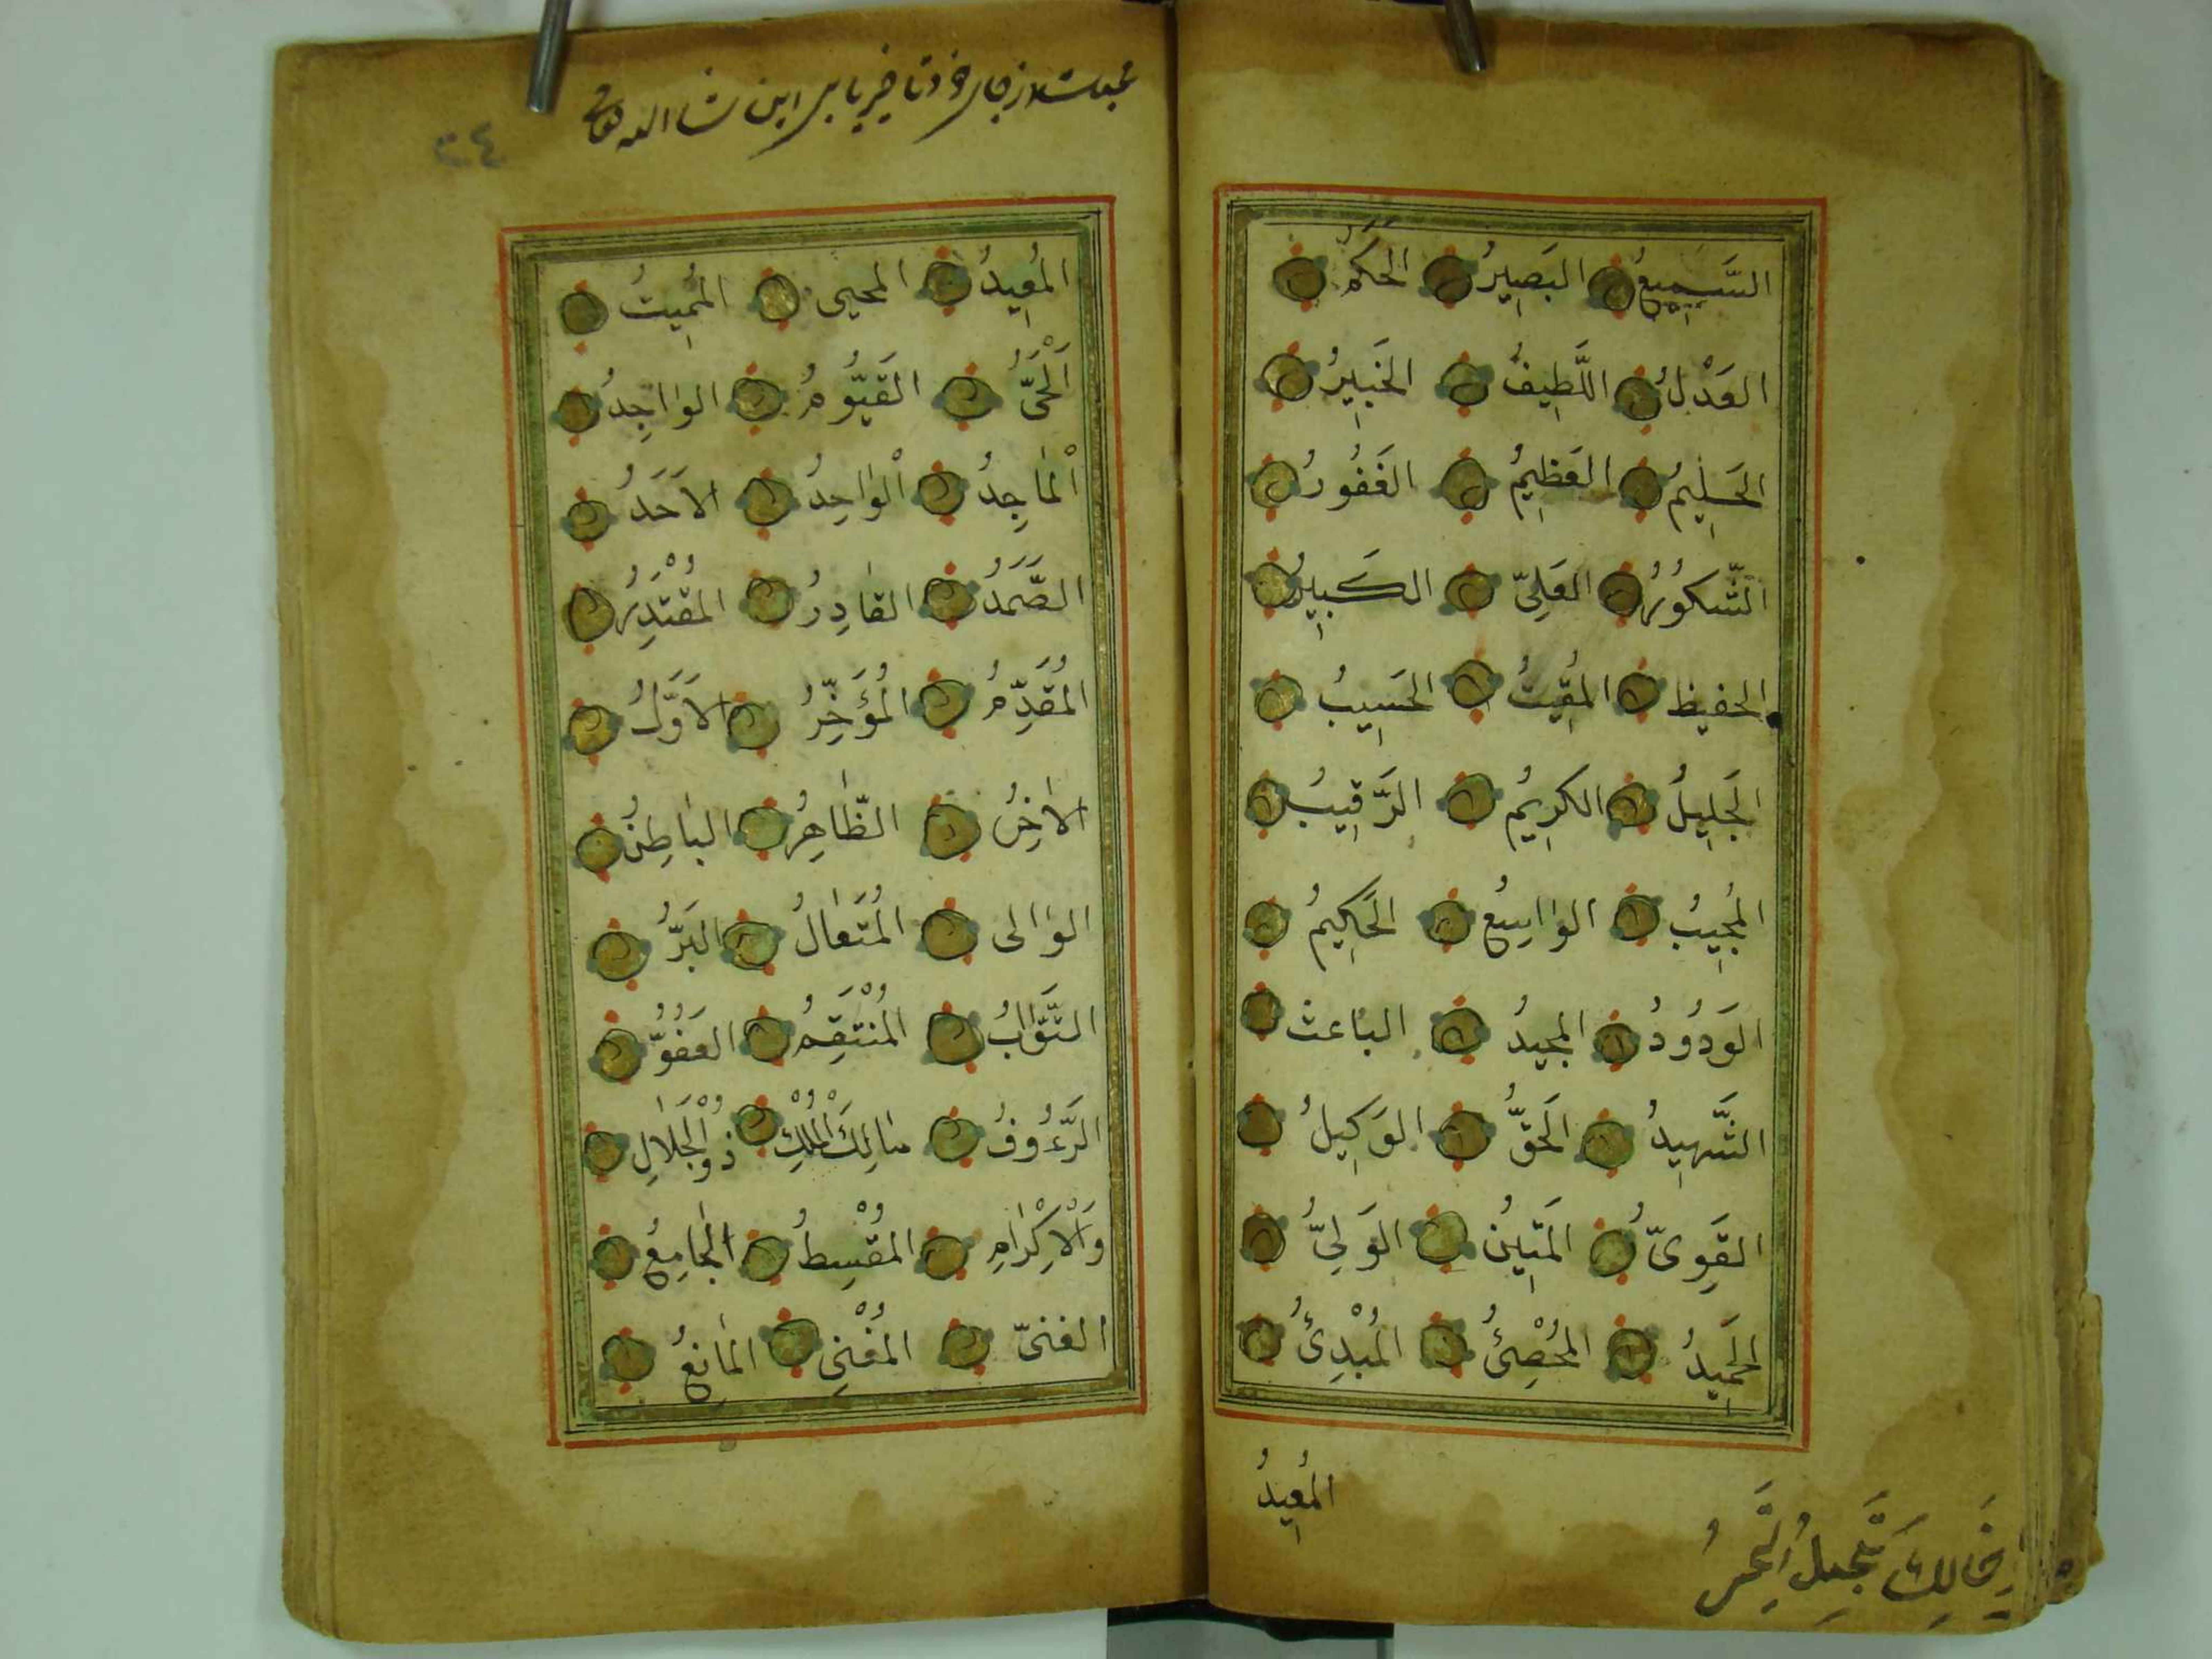 السَّمِيعُ البَصِيرُ الحَكَمُ
العَدْلُ اللَّطِيفُ الخَبِيرُ
الحَلِيمُ العَظِيمُ الغَفُورُ
الشَّكُورُ العَلِىّ الكَبِيرُ
الحفيظ المُقِيتُ الحَسِيبُ
الجَلِيلُ الكَرِيمُ الرَّقِيبُ
المُجِيبُ الوٰاسِعُ الحَكِيمُ
الوَدُودُ المجيدُ البٰاعث
الشَّهِيدُ الحَقُّ الوَكِيلُ
القَوِىّ المَتِينُ الوَلِىُّ
الحَمِيدُ المُحْصِىُ المُبْدِئُ
المُعِيدُ
المُعِيدُ المحيى المُمِيتُ
اَلْحَىُّ القَيُّومُ الوٰاجِدُ
اْلمٰاجِدُ اْلوٰاحِدُ الاَحَدُ
الصَّمَدُ القٰادِرُ المُقْتَدِرُ
المُقَدِّمُ المُؤَخِّرُ الاَوَّلُ
الاٰخِرُ الظّٰاهِرُ البٰاطِنُ
الوٰالى المُتَعٰالُ البَرُّ
التَّوّٰابُ المُنْتَقِمُ العَفُوُّ
الرَّءُوفُ مٰالِكَ الْمُلْكِ ذُو الْجَلٰالِ
وَالْاِكْرٰامِ المُقْسِطُ الجٰامِعُ
الغنىّ المُغْنِى المٰانِعُ